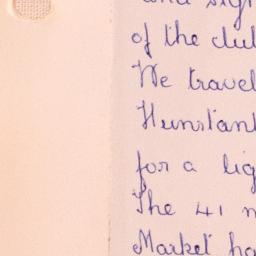 and sigh
of the clu
We travel
Hunstant
for a lig
The 41 m
Market ha